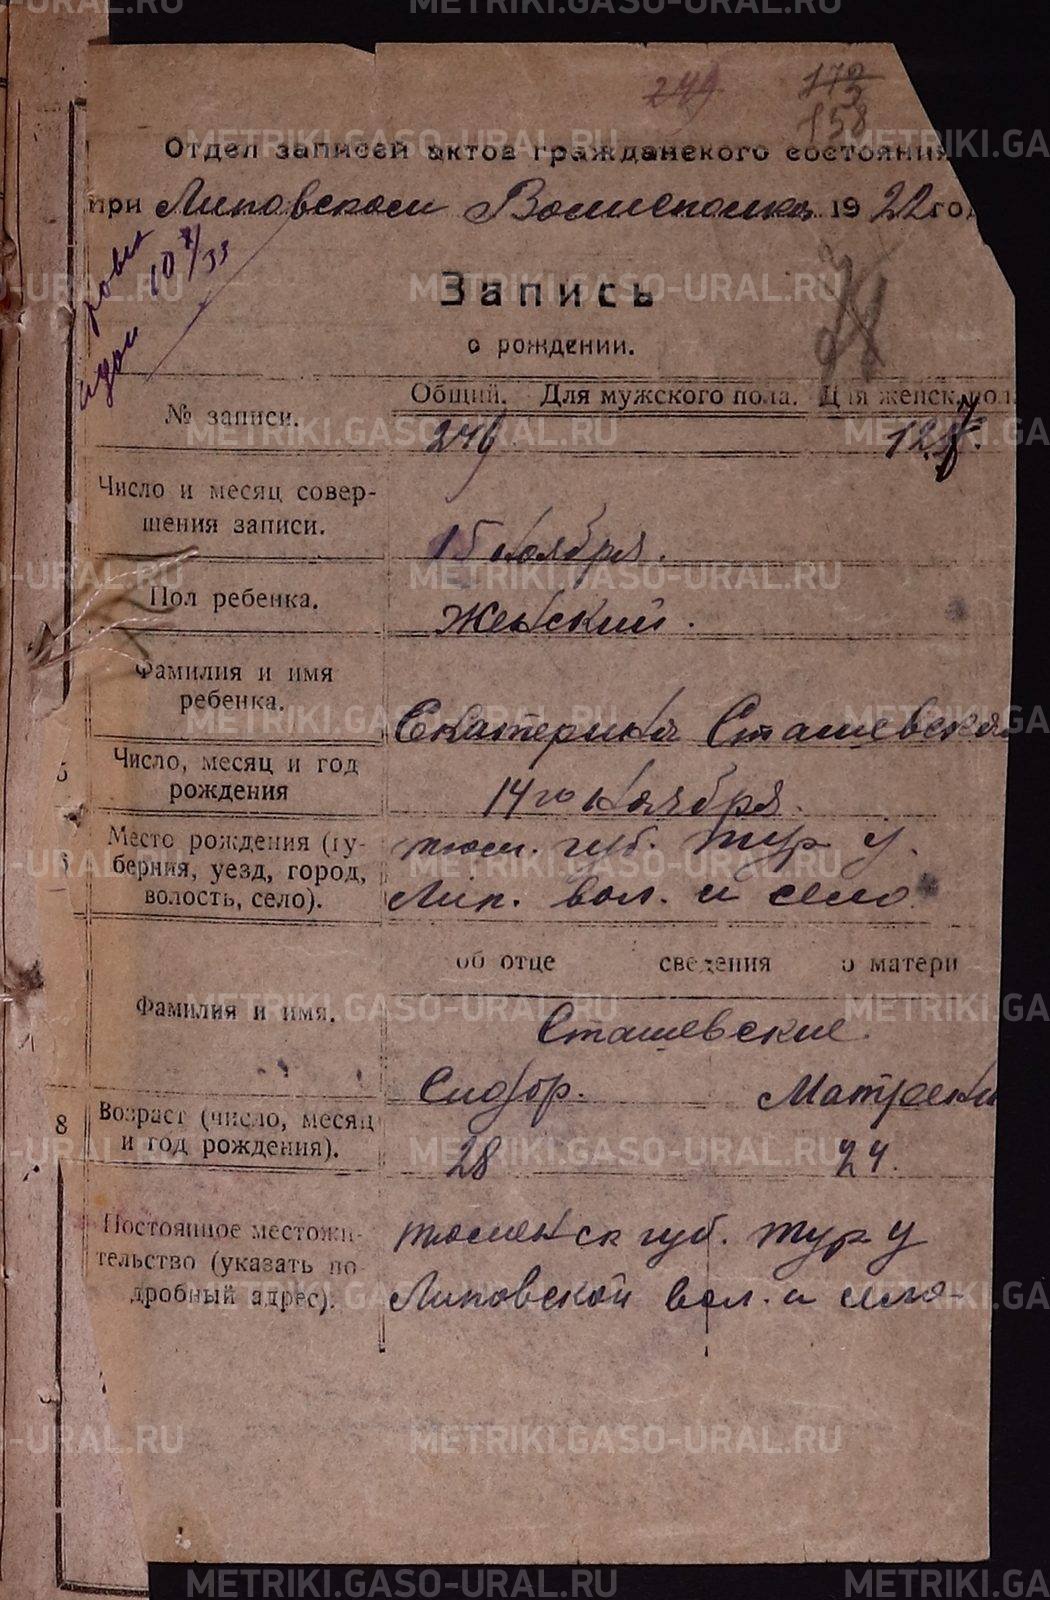 249 172
3
158
Отдел записей актов гражданского состояния
при Липовском Волисполкоме 1922 год
10 X/33
Запись
о рождении.
№ записи. Общий. Для мужского пола. Для женск. пол.
249 127.
Число и месяц совер-
шения записи. 15 ноября.
Пол ребенка. Женский.
Фамилия и имя
ребенка. Екатерина Сташевская
5 Число, месяц и год
рождения 14го ноября.
6 Место рождения (гу-
берния, уезд, город,
волость, село). тюм. губ. тур у.
Лип. вол. и село
об отце сведения о матери
Фамилия и имя. Сташевские.
Сидор. Матрена
8 Возраст (число, месяц
и год рождения). 28 24.
Постоянное местожи-
тельство (указать по-
дробный адрес). тюменск губ. тур у
Липовской вол. и село
METRIKI.GASO-URAL.RU